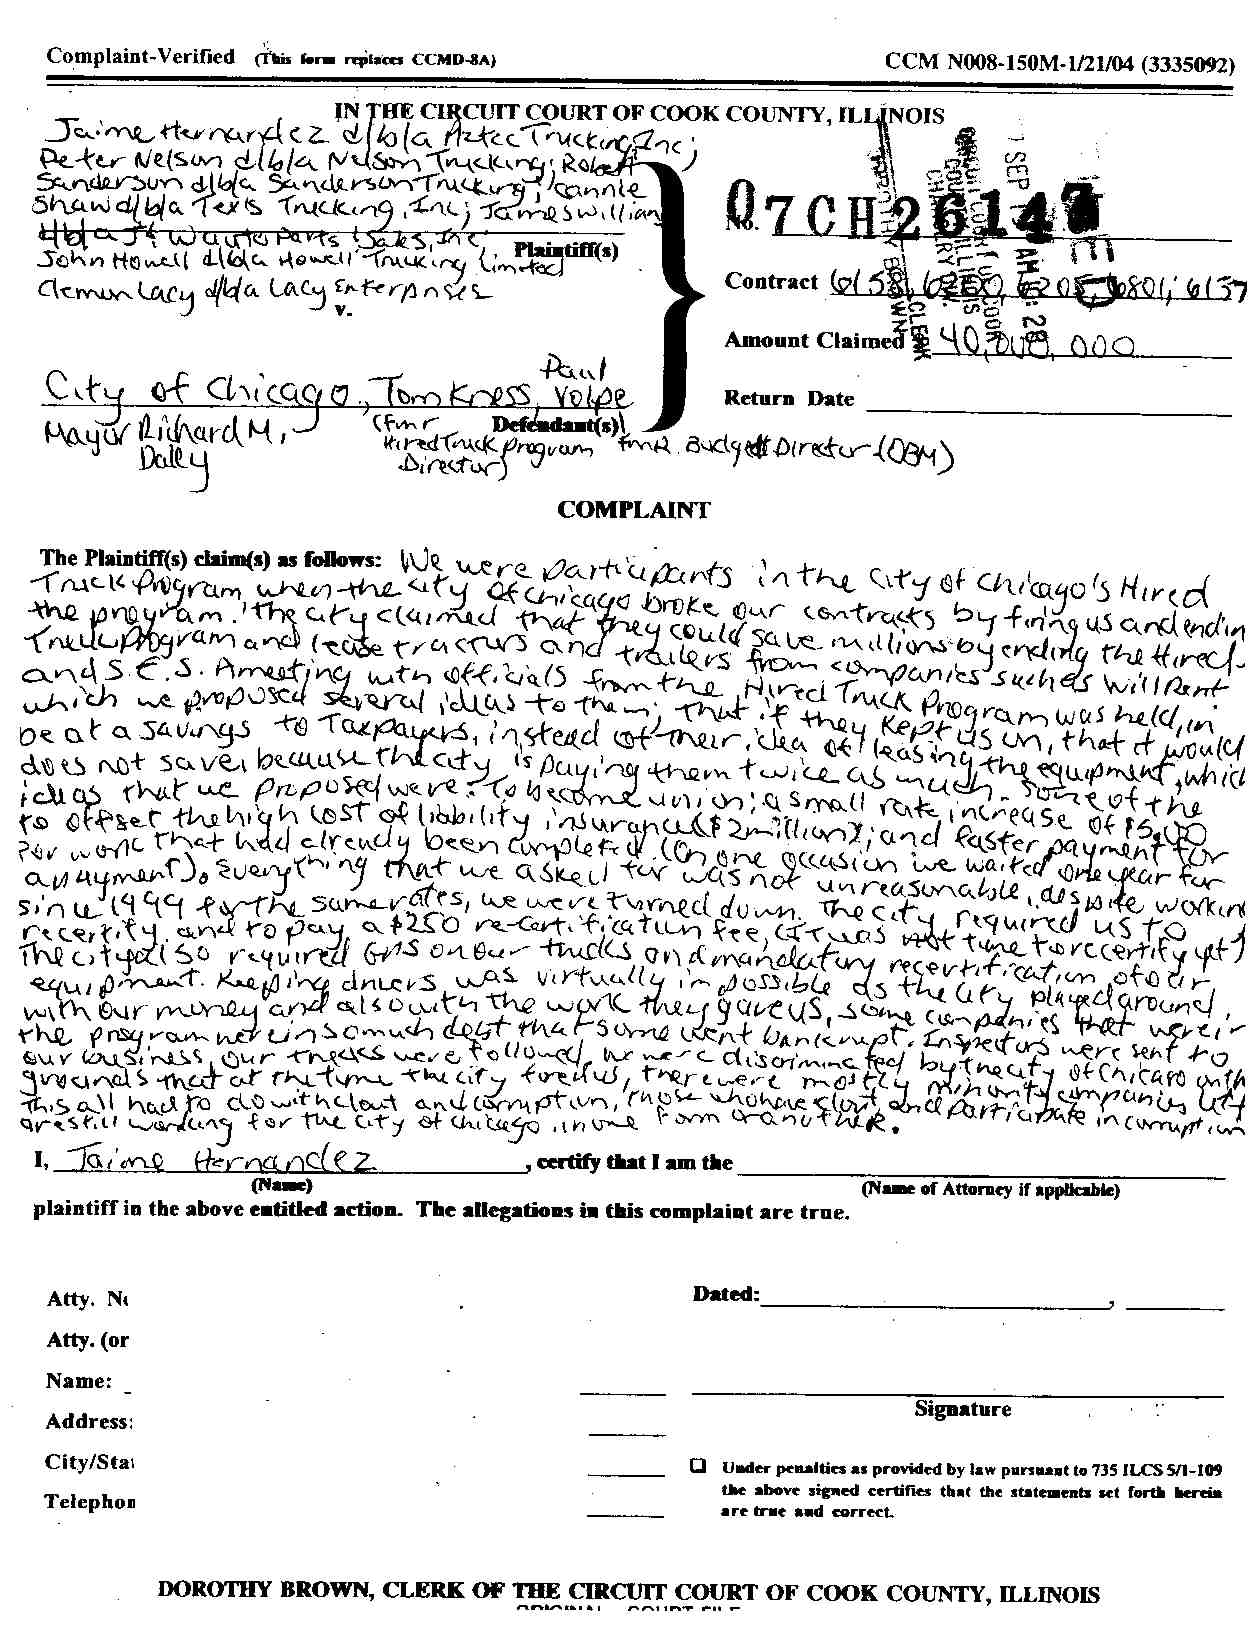 Complaint-Verified (This form replaces CCMD-8A) CCM N008-150M-1/21/04 (3335092)
IN THE CIRCUIT COURT OF COOK COUNTY, ILLINOIS
Jaime Hernandez d/b/a Aztec Trucking, Inc;
Peter Nelson d/b/a Nelson Trucking; Robert
Sanderson d/b/a Sanderson Trucking;
Shaw d/b/a Texis Trucking, Inc; James William
d/b/a Parts & Sales, Inc;
John Howell d/b/a Howell Trucking Limited
Clemon Lacy d/b/a Lacy Enterprises
Plaintiff(s)
v.
No. 07CH2614
Contract 6158, 6200, 6205, 6801, 6137
Amount Claimed $ 40,000,000
Return Date
City of Chicago, Tom Kness, Paul Volpe
Defendant(s)
Mayor Richard M. Daley
(fmr Hired Truck Program Director)
fmr. Budget Director (OBM)
COMPLAINT
The Plaintiff(s) claim(s) as follows: We were participants in the City of Chicago's Hired
Truck Program when the City of Chicago broke our contracts by firing us and endin
the program. The city claimed that they could save millions by ending the Hired
Truck Program and lease tractors and trailers from companies such as Will Rent
and S.E.S. A meeting with officials from the Hired Truck Program was held, in
which we proposed several ideas to them; that if they kept us on, that it would
be at a savings to Taxpayers, instead of their idea of leasing the equipment, which
does not save, because the city is paying them twice as much. Some of the
ideas that we proposed were: To become union; a small rate increase of $5.00
to offset the high cost of liability insurance ($2 million); and faster payment for
for work that had already been completed. (On one occasion we waited one year for
a payment). Everything that we asked for was not unreasonable, despite workin
since 1999 for the same rates, we were turned down. The city required us to
recertify and to pay a $250 re-certification fee, (It was not time to recertify yet)
The city also required GPS on our trucks and mandatory recertification of our
equipment. Keeping drivers was virtually impossible as the City played around
with our money and also with the work they gave us, some companies that were in
the program were in so much debt that some went bankrupt. Inspectors were sent to
our business, our trucks were followed. We were discriminated by the City of Chicago on th
grounds that at the time the city fired us, there were mostly minority companies left
This all had to do with clout and corruption, those who have clout and participate in corruption
are still working for the City of Chicago in one form or another.
I, Jaime Hernandez, certify that I am the
(Name) (Name of Attorney if applicable)
plaintiff in the above entitled action. The allegations in this complaint are true.
Atty. No
Dated: ,
Atty. (or
Name:
Signature
Address:
City/Stat
Telephon
Under penalties as provided by law pursuant to 735 ILCS 5/1-109
the above signed certifies that the statements set forth herein
are true and correct.
DOROTHY BROWN, CLERK OF THE CIRCUIT COURT OF COOK COUNTY, ILLINOIS
ORIGINAL - COURT FILE